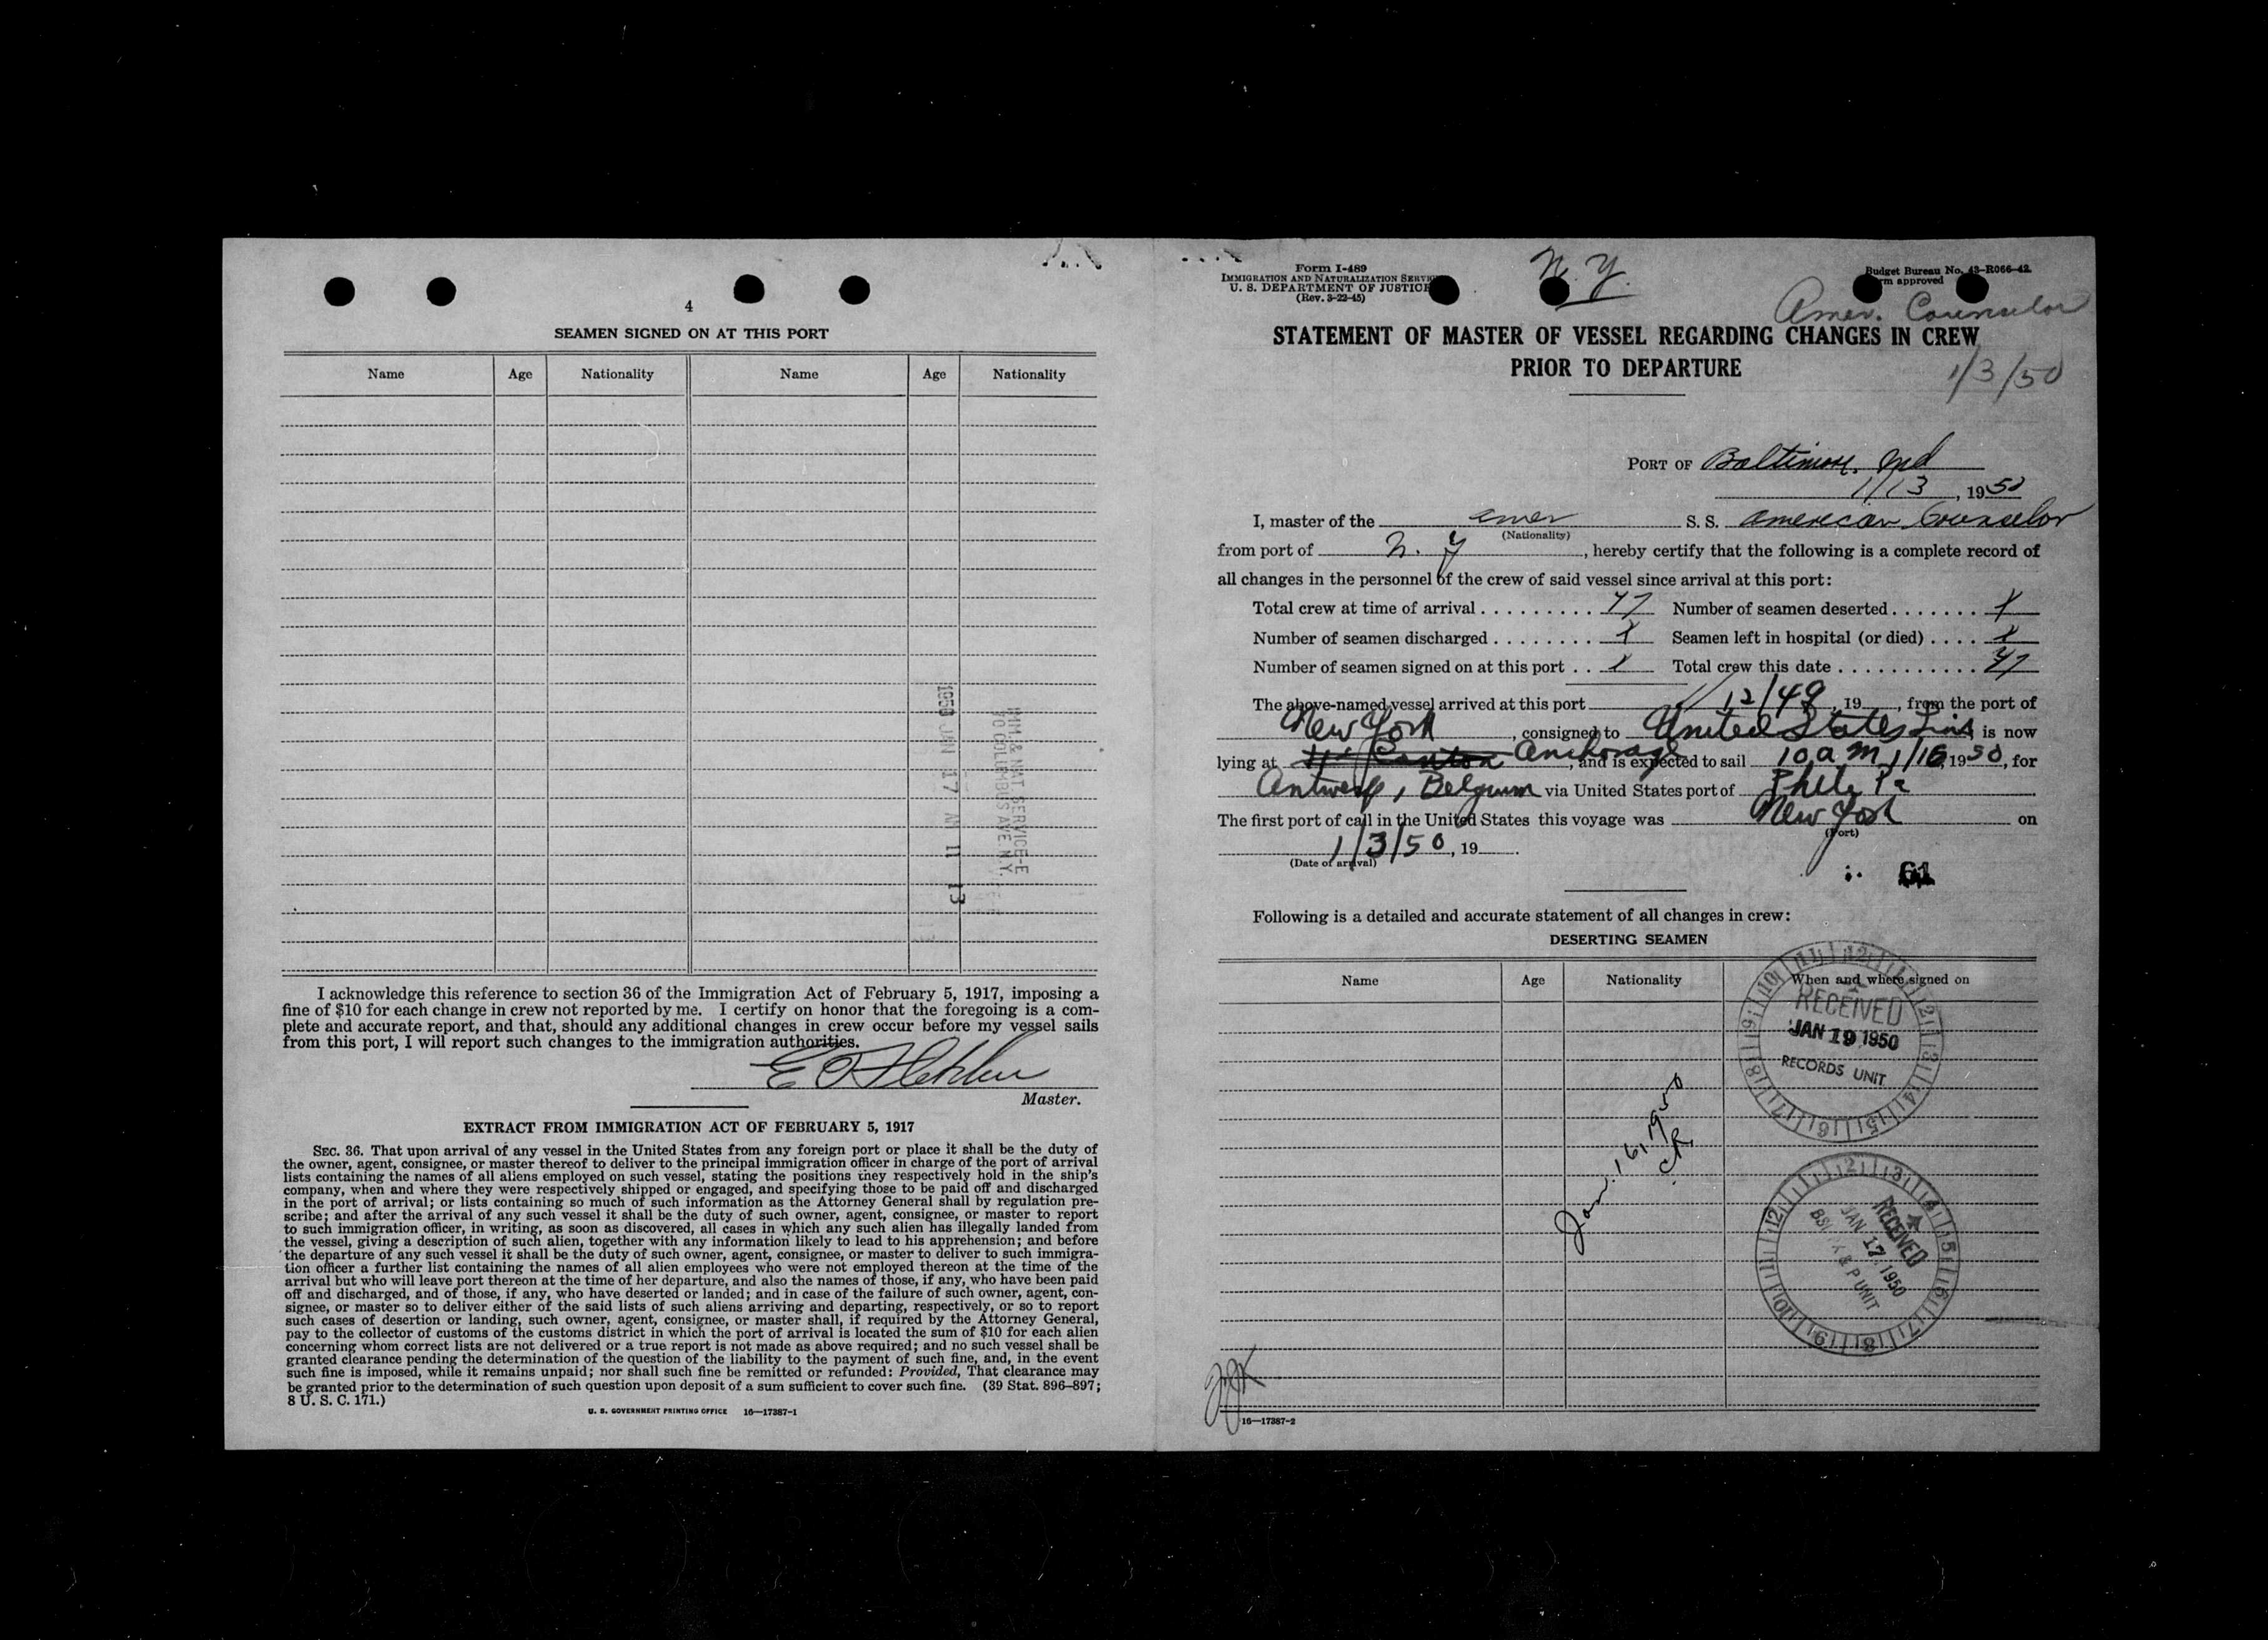 4
SEAMEN SIGNED ON AT THIS PORT
Name Age Nationality Name Age Nationality
1950 JAN 17 AM 11 13
IMM. & NAT. SERVICE-E
70 COLUMBUS AVE. N.Y.
I acknowledge this reference to section 36 of the Immigration Act of February 5, 1917, imposing a
fine of $10 for each change in crew not reported by me. I certify on honor that the foregoing is a com-
plete and accurate report, and that, should any additional changes in crew occur before my vessel sails
from this port, I will report such changes to the immigration authorities.
Master.
EXTRACT FROM IMMIGRATION ACT OF FEBRUARY 5, 1917
SEC. 36. That upon arrival of any vessel in the United States from any foreign port or place it shall be the duty of
the owner, agent, consignee, or master thereof to deliver to the principal immigration officer in charge of the port of arrival
lists containing the names of all aliens employed on such vessel, stating the positions they respectively hold in the ship's
company, when and where they were respectively shipped or engaged, and specifying those to be paid off and discharged
in the port of arrival; or lists containing so much of such information as the Attorney General shall by regulation pre-
scribe; and after the arrival of any such vessel it shall be the duty of such owner, agent, consignee, or master to report
to such immigration officer, in writing, as soon as discovered, all cases in which any such alien has illegally landed from
the vessel, giving a description of such alien, together with any information likely to lead to his apprehension; and before
the departure of any such vessel it shall be the duty of such owner, agent, consignee, or master to deliver to such immigra-
tion officer a further list containing the names of all alien employees who were not employed thereon at the time of the
arrival but who will leave port thereon at the time of her departure, and also the names of those, if any, who have been paid
off and discharged, and of those, if any, who have deserted or landed; and in case of the failure of such owner, agent, con-
signee, or master so to deliver either of the said lists of such aliens arriving and departing, respectively, or so to report
such cases of desertion or landing, such owner, agent, consignee, or master shall, if required by the Attorney General,
pay to the collector of customs of the customs district in which the port of arrival is located the sum of $10 for each alien
concerning whom correct lists are not delivered or a true report is not made as above required; and no such vessel shall be
granted clearance pending the determination of the question of the liability to the payment of such fine, and, in the event
such fine is imposed, while it remains unpaid; nor shall such fine be remitted or refunded: Provided, That clearance may
be granted prior to the determination of such question upon deposit of a sum sufficient to cover such fine. (39 Stat. 896-897;
8 U. S. C. 171.)
U. S. GOVERNMENT PRINTING OFFICE 16—17387-1
Form I-489
IMMIGRATION AND NATURALIZATION SERVICE
U. S. DEPARTMENT OF JUSTICE
(Rev. 3-22-45)
N. Y.
Budget Bureau No. 43-R066-42.
Form approved
Amer. Counselor
STATEMENT OF MASTER OF VESSEL REGARDING CHANGES IN CREW
PRIOR TO DEPARTURE
1/3/50
PORT OF Baltimore, Md
1/13, 1950
I, master of the Amer S. S. American Counselor
(Nationality)
from port of N. Y, hereby certify that the following is a complete record of
all changes in the personnel of the crew of said vessel since arrival at this port:
Total crew at time of arrival 47 Number of seamen deserted X
Number of seamen discharged X Seamen left in hospital (or died) X
Number of seamen signed on at this port X Total crew this date 47
The above-named vessel arrived at this port 1/12/49, 19, from the port of
New York, consigned to United States Lines is now
lying at Anchorage, and is expected to sail 10 am 1/16, 1950, for
Antwerp, Belgium via United States port of Phila Pa
The first port of call in the United States this voyage was New York on
(Port)
1/3/50, 19
(Date of arrival)
61
Following is a detailed and accurate statement of all changes in crew:
DESERTING SEAMEN
Name Age Nationality When and where signed on
RECEIVED
JAN 19 1950
RECORDS UNIT
Jan. 16, 1950
RECEIVED
JAN 17 1950
P UNIT
16—17387-2